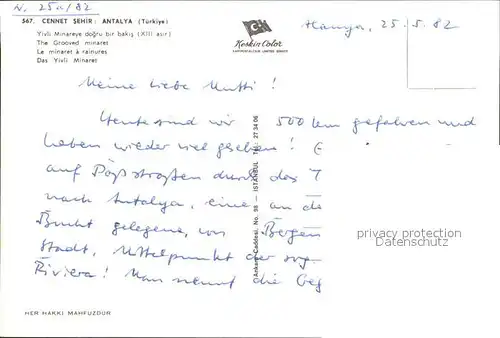 N. 25a/82
567. CENNET ŞEHİR: ANTALYA (Türkiye)
Yivli Minareye doğru bir bakış (XIII asır)
The Grooved minaret
Le minaret à rainures
Das Yivli Minaret
Keskin Color
25.5.82
Meine liebe Mutti!
Heute sind wir 500 km gefahren und
haben wieder viel gesehen!
auf Paßstraßen durch das T
nach Antalya, eine an de
Bucht gelegene, von Bergen
Stadt, Mittelpunkt der sog.
Riviera! Man nennt die Geg
Ankara Caddesi, No. 98 - ISTANBUL TEL: 27 34 06
privacy protection
Datenschutz
HER HAKKI MAHFUZDUR